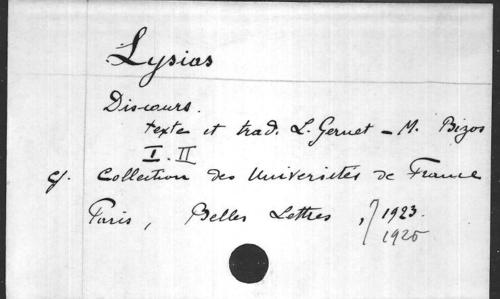 Lysias
Discours.
texte et trad. L. Gernet - M. Bizos
I. II
cf. Collection des Universités de France
Paris, Belles Lettres, 1923.
1925